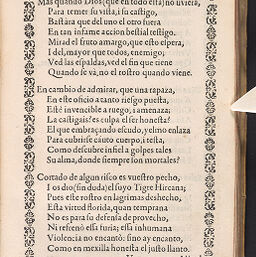 Mas quando Dios (que en todo està) no uviera,
Para temer su vista, i su castigo,
Bastàra que del uno el otro fuera
En tan infame accion bestial testigo.
Mirad el fruto amargo, que esto espera,
I del, mayor que todos, enemigo;
Ved las espaldas, ved el fin que tiene
Quando se và, no el rostro quando viene.
En cambio de admirar, que una rapaza,
En este oficio a tanto riesgo puesta,
Esté invencible a ruego, i amenaza;
La castigais? es culpa el ser honesta?
El que embraçando escudo, yelmo enlaza
Para cubrirse cauto cuerpo, i testa,
Como descubre infiel a golpes tales
Su alma, donde siempre son mortales?
Cortado de algun risco es vuestro pecho,
I os dio (sin duda) el suyo Tigre Hircana;
Pues este rostro en lagrimas deshecho,
Esta virtud florida, quan temprana
No es para su defensa de provecho,
Ni refrenò essa furia; essa inhumana
Violencia no encantò: sino ay encanto,
Como en mexilla honesta el justo llanto.